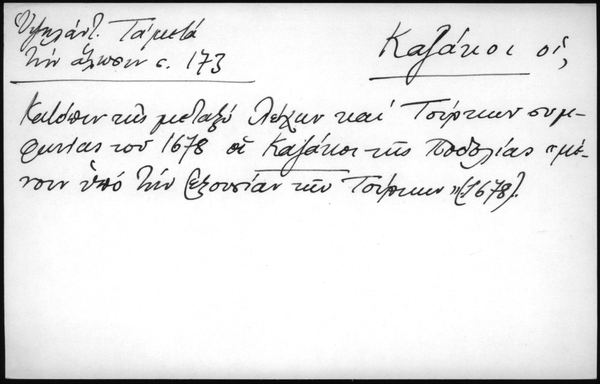 Ὑψηλάντ. Τὰ μετὰ
τὴν ἅλωσιν σ. 173
Καζάκοι οἱ,
Κατόπιν τῆς μεταξύ Λέχων καί Τούρκων συμ-
φωνίας του 1678 οἱ Καζάκοι τῆς Ποδολίας "μέ-
νουν ὑπό τὴν ἐξουσίαν τῶν Τούρκων" (1678).